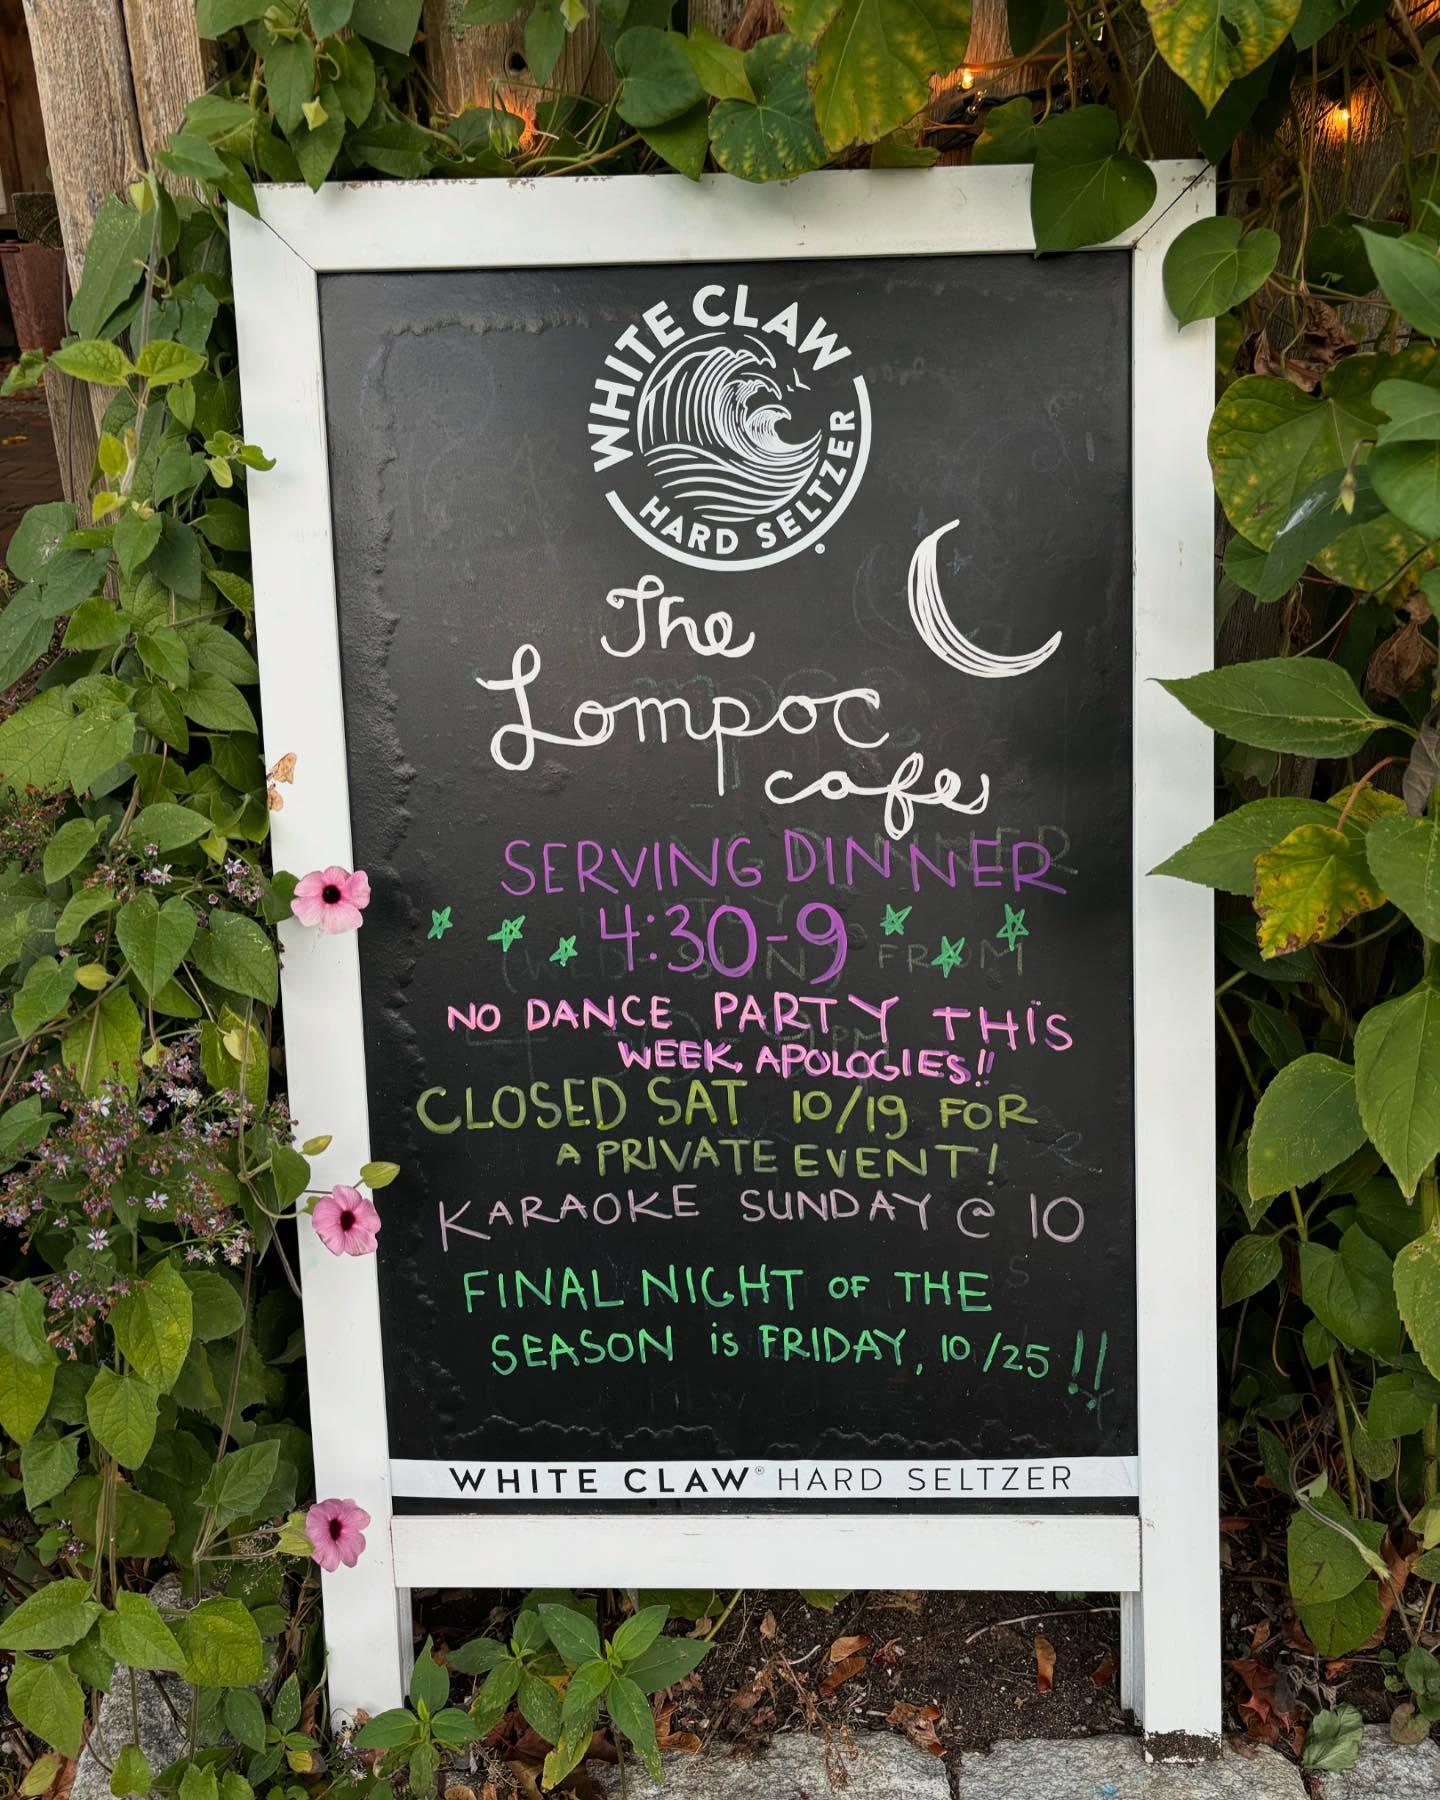 WHITE CLAW
HARD SELTZER®
The
Lompoc
cafe
SERVING DINNER
4:30-9
NO DANCE PARTY THIS
WEEK, APOLOGIES!!
CLOSED SAT 10/19 FOR
A PRIVATE EVENT!
KARAOKE SUNDAY @ 10
FINAL NIGHT OF THE
SEASON is FRIDAY, 10/25!!
WHITE CLAW® HARD SELTZER